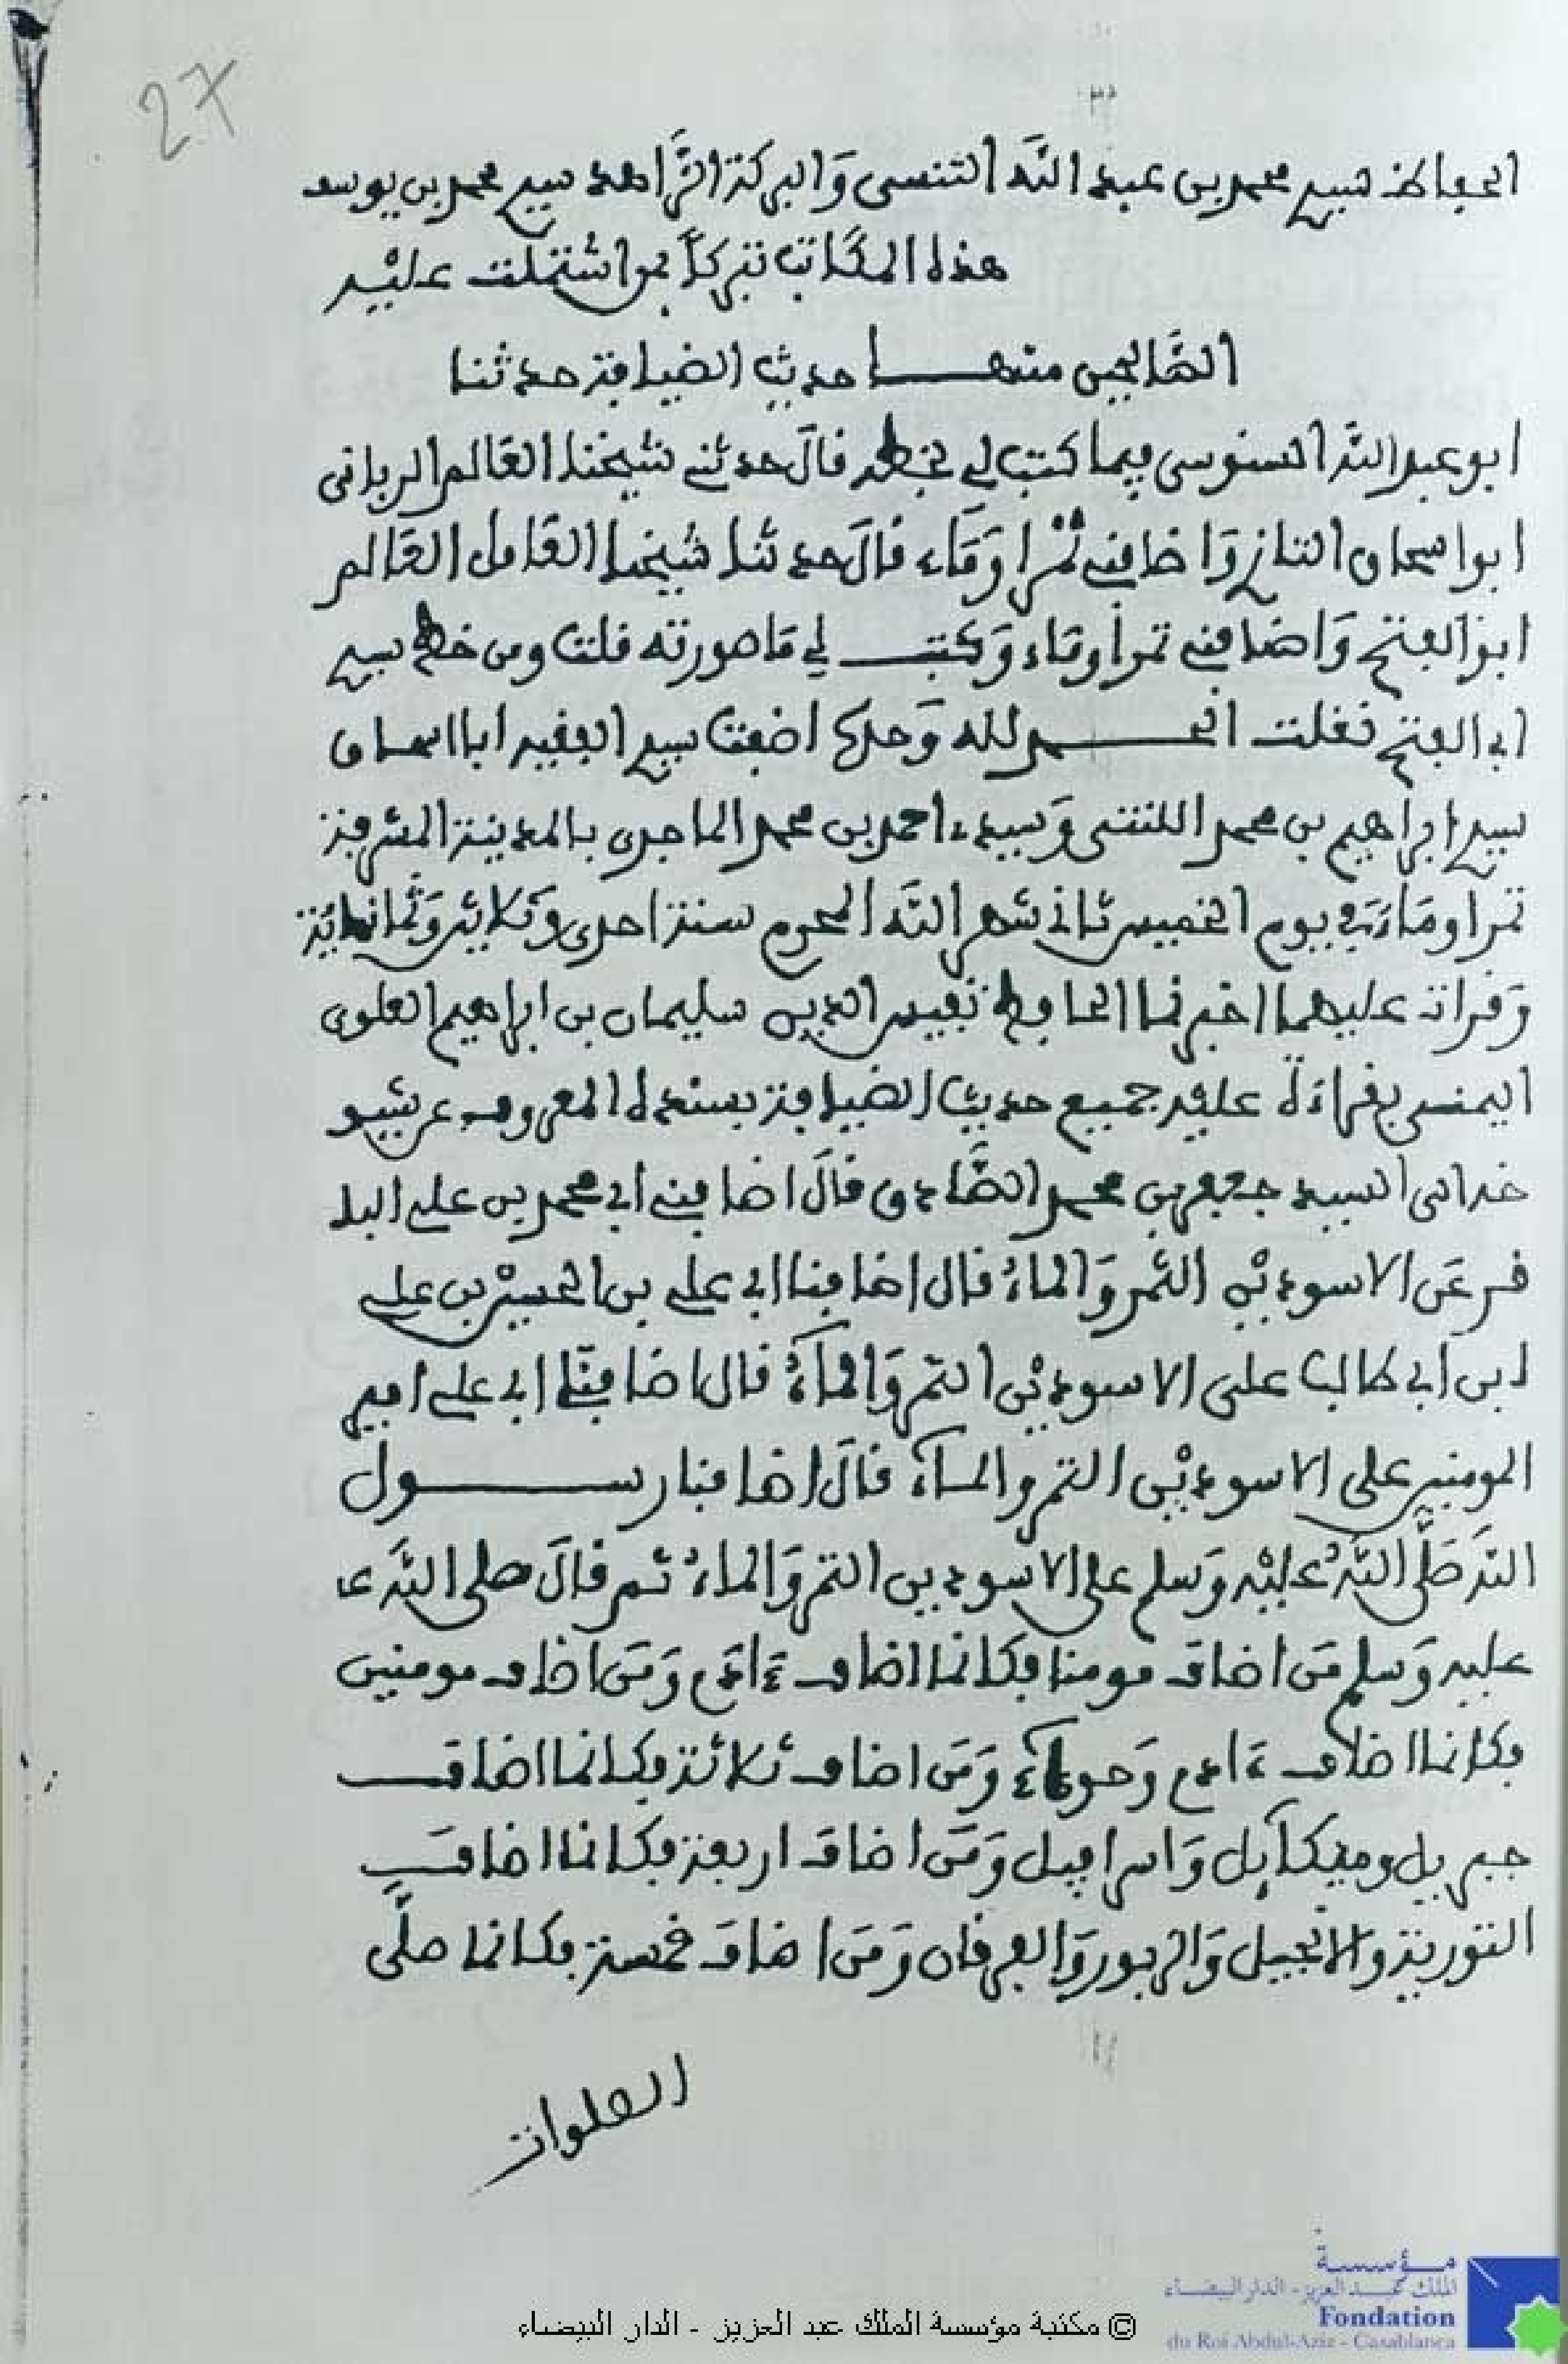 27
الحافظ سيدي محمد بن عبد الله التنسي وَالبركة الزَّاهد سيدي محمد بن يوسف
هذه المكاتب تبركاً بمن اشتملت عليْه
الصَّالحين منهــــا حديث الضيافة حدثنا
ابو عبد الله السنوسي فيما كتب لي بخطه قالَ حدثني شيخنا العَالم الرباني
ابو اسحاق التازي وَاضافني تمْرا وَمَاء قالَ حدثنا شيْخنا العَامل العَالم
ابو الفتح وَاضافني تمرا وماء وَكتب لي مَا صورته قلت ومن خطه سيدي
ابي الفتح نقلت الحمد لله وَحده اضفت سيدي الفقير ابا اسحاق
سيدي ابراهيم بن محمد اللنتي وَسيدي احمد بن محمد الماجري بالمدينة المشرفة
تمرا ومَاء في يوم الخميس ثاني شهر الله المحرم سنة احدى وَثلاثين وَثمانمائة
وَقرات عليهما اخبرنا الحافظ نفيس الدين سليمان بن ابراهيم العلوي
اليمني بقراءة عليه جميع حديث الضيافة بسنده المعروف عن شيو
خه الى السيد جعفر بن محمد الصَّادق قالَ اضافني ابي محمد بن علي البا
قر عَلى الاسوديْن التمر وَالماءُ قال اضافنا ابي علي بن الحسيْن بن علي
ابن ابي طالب على الاسوديْن التمر وَالمآءُ قال اضافنَا ابي علي امير
المومنين على الاسوديْن التمر والمآء قالَ اضافنا رســـول
اللهَ صَلَّى اللهُ عليْه وَسلم على الاسودين التمر وَالماءُ ثم قالَ صلى اللهَ عا
عليه وَسلم مَن اضاف مومنا فكانما اضاف ءادَم وَمَن اضاف مومنين
فكانما اضاف ءادم وَحواء وَمَن اضاف ثلاثة فكانما اضاف
جبريل وميكآيل وَاسرافيل وَمَن اضاف اربعة فكانما اضافَ
التورية والانجيل وَالزبور وَالفرقان وَمَن اضاف خمسة فكانما صلَّى
الصلوات
مؤسسة
الملك عبد العزيز - الدار البيضاء
Fondation
du Roi Abdul-Aziz - Casablanca
© مكتبة مؤسسة الملك عبد العزيز - الدار البيضاء